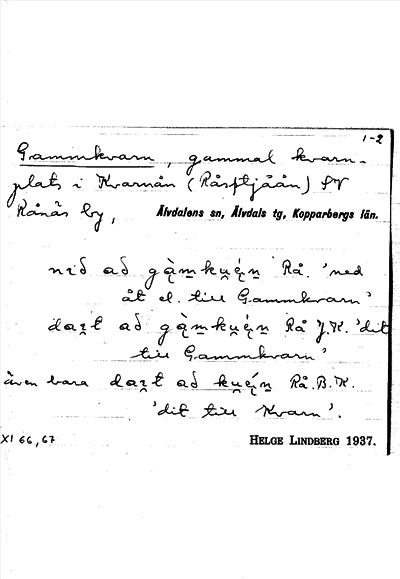 1-2
Gammkvarn, gammal kvarn-
plats i Kvarnån (Råsftjåån) SV
Rånäs by, Älvdalens sn, Älvdals tg, Kopparbergs län.
nið að gą̀m̲ku̯ę́n̲ Rå. 'ned
åt el. till Gammkvarn'
daı̯t að gą̀m̲ku̯ę́n̲ Rå J.K. 'dit
till Gammkvarn'
även bara daı̯t að ku̯ę́n̲ Rå. B.K.
'dit till Kvarn'.
XI 66, 67 HELGE LINDBERG 1937.